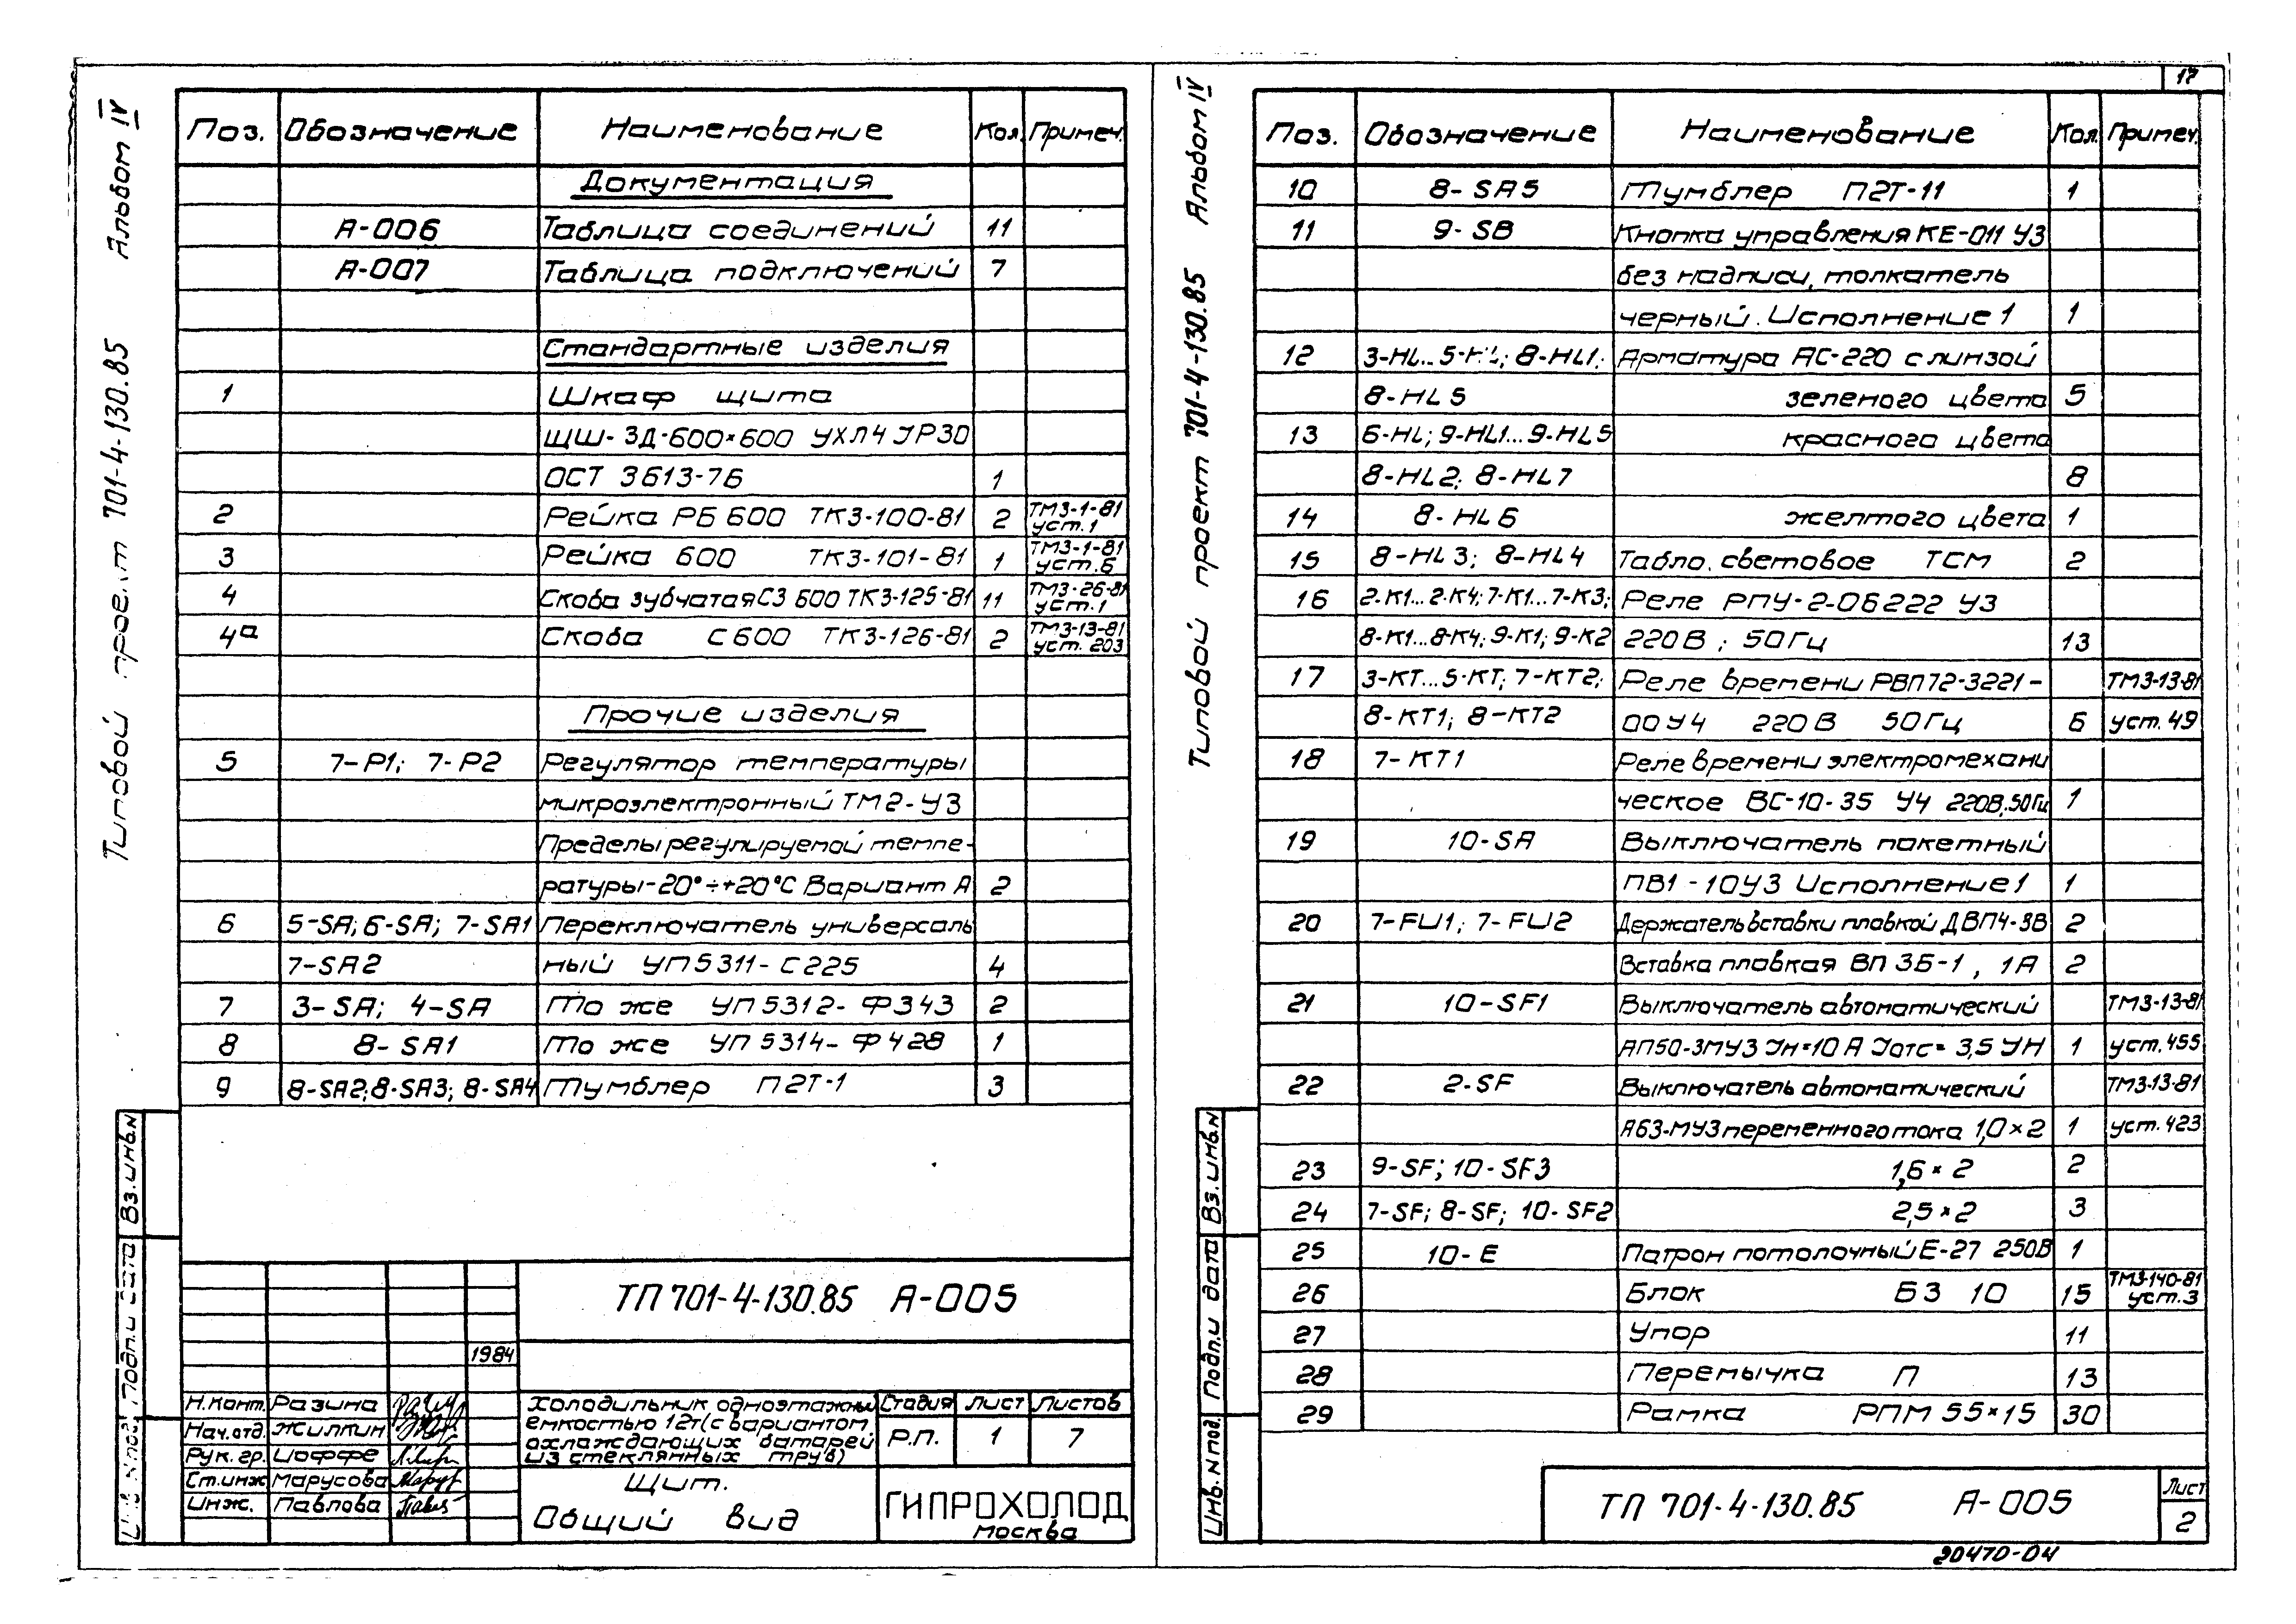 17
Альбом IV
Типовой проект 701-4-130.85
Поз. Обозначение Наименование Кол. Примеч.
Документация
А-006 Таблица соединений 11
А-007 Таблица подключений 7
Стандартные изделия
1 Шкаф щита
ЩШ-ЗД-600×600 УХЛ4 УР30
ОСТ 3613-76 1
2 Рейка РБ 600 ТК3-100-81 2 ТМ3-1-81 уст.1
3 Рейка 600 ТК3-101-81 1 ТМ3-1-81 уст.6
4 Скоба зубчатая СЗ 600 ТК3-125-81 11 ТМ3-26-81 уст.1
4а Скоба С 600 ТК3-126-81 2 ТМ3-13-81 уст. 203
Прочие изделия
5 7-Р1; 7-Р2 Регулятор температуры
микроэлектронный ТМ2-У3
Пределы регулируемой темпе-
ратуры-20°÷+20°С Вариант А 2
6 5-SA; 6-SA; 7-SA1 Переключатель универсаль
7-SA2 ный УП5311-С225 4
7 3-SA; 4-SA То же УП5312-Ф343 2
8 8-SA1 То же УП5314-Ф428 1
9 8-SA2; 8-SA3; 8-SA4 Тумблер П2Т-1 3
Вз.инв.N
Подп.и дата
1984
ТП 701-4-130.85 А-005
Н.конт. Разина
Нач.отд. Жилкин
Рук.гр. Иоффе
Ст.инж Марусова
Инж. Павлова
Холодильник одноэтажный
емкостью 12т(с вариантом
охлаждающих батарей
из стеклянных труб)
Стадия Лист Листов
Р.П. 1 7
Щит.
Общий вид
ГИПРОХОЛОД
Москва
Альбом IV
Типовой проект 701-4-130.85
Поз. Обозначение Наименование Кол. Примеч.
10 8-SA5 Тумблер П2Т-11 1
11 9-SB Кнопка управления КЕ-011 У3
без надписи, толкатель
черный. Исполнение 1 1
12 3-HL...5-HL; 8-HL1; Арматура АС-220 с линзой
8-HL5 зеленого цвета 5
13 6-HL; 9-HL1...9-HL5 красного цвета
8-HL2; 8-HL7 8
14 8-HL6 желтого цвета 1
15 8-HL3; 8-HL4 Табло световое ТСМ 2
16 2-К1...2-К4; 7-К1...7-К3; Реле РПУ-2-06222 У3
8-К1...8-К4; 9-К1; 9-К2 220В; 50Гц 13
17 3-КТ...5-КТ; 7-КТ2; Реле времени РВП72-3221- ТМ3-13-81
8-КТ1; 8-КТ2 00У4 220В 50Гц 6 уст.49
18 7-КТ1 Реле времени электромехани
ческое ВС-10-35 У4 220В,50Гц 1
19 10-SA Выключатель пакетный
ПВ1-10У3 Исполнение1 1
20 7-FU1; 7-FU2 Держатель вставки плавкой ДВП4-3В 2
Вставка плавкая ВП 3Б-1, 1А 2
21 10-SF1 Выключатель автоматический ТМ3-13-81
АП50-3МУ3 Iн=10 А Iотс=3,5 Iн 1 уст.455
22 2-SF Выключатель автоматический ТМ3-13-81
А63-МУ3 переменного тока 1,0×2 1 уст.423
23 9-SF; 10-SF3 1,6×2 2
24 7-SF; 8-SF; 10-SF2 2,5×2 3
25 10-Е Патрон потолочный Е-27 250В 1
26 Блок БЗ 10 15 ТМ3-140-81 уст.3
27 Упор 11
28 Перемычка П 13
29 Рамка РПМ 55×15 30
Вз.инв.N
Подп.и дата
Инв.N под.
ТП 701-4-130.85 А-005
Лист
2
20470-04